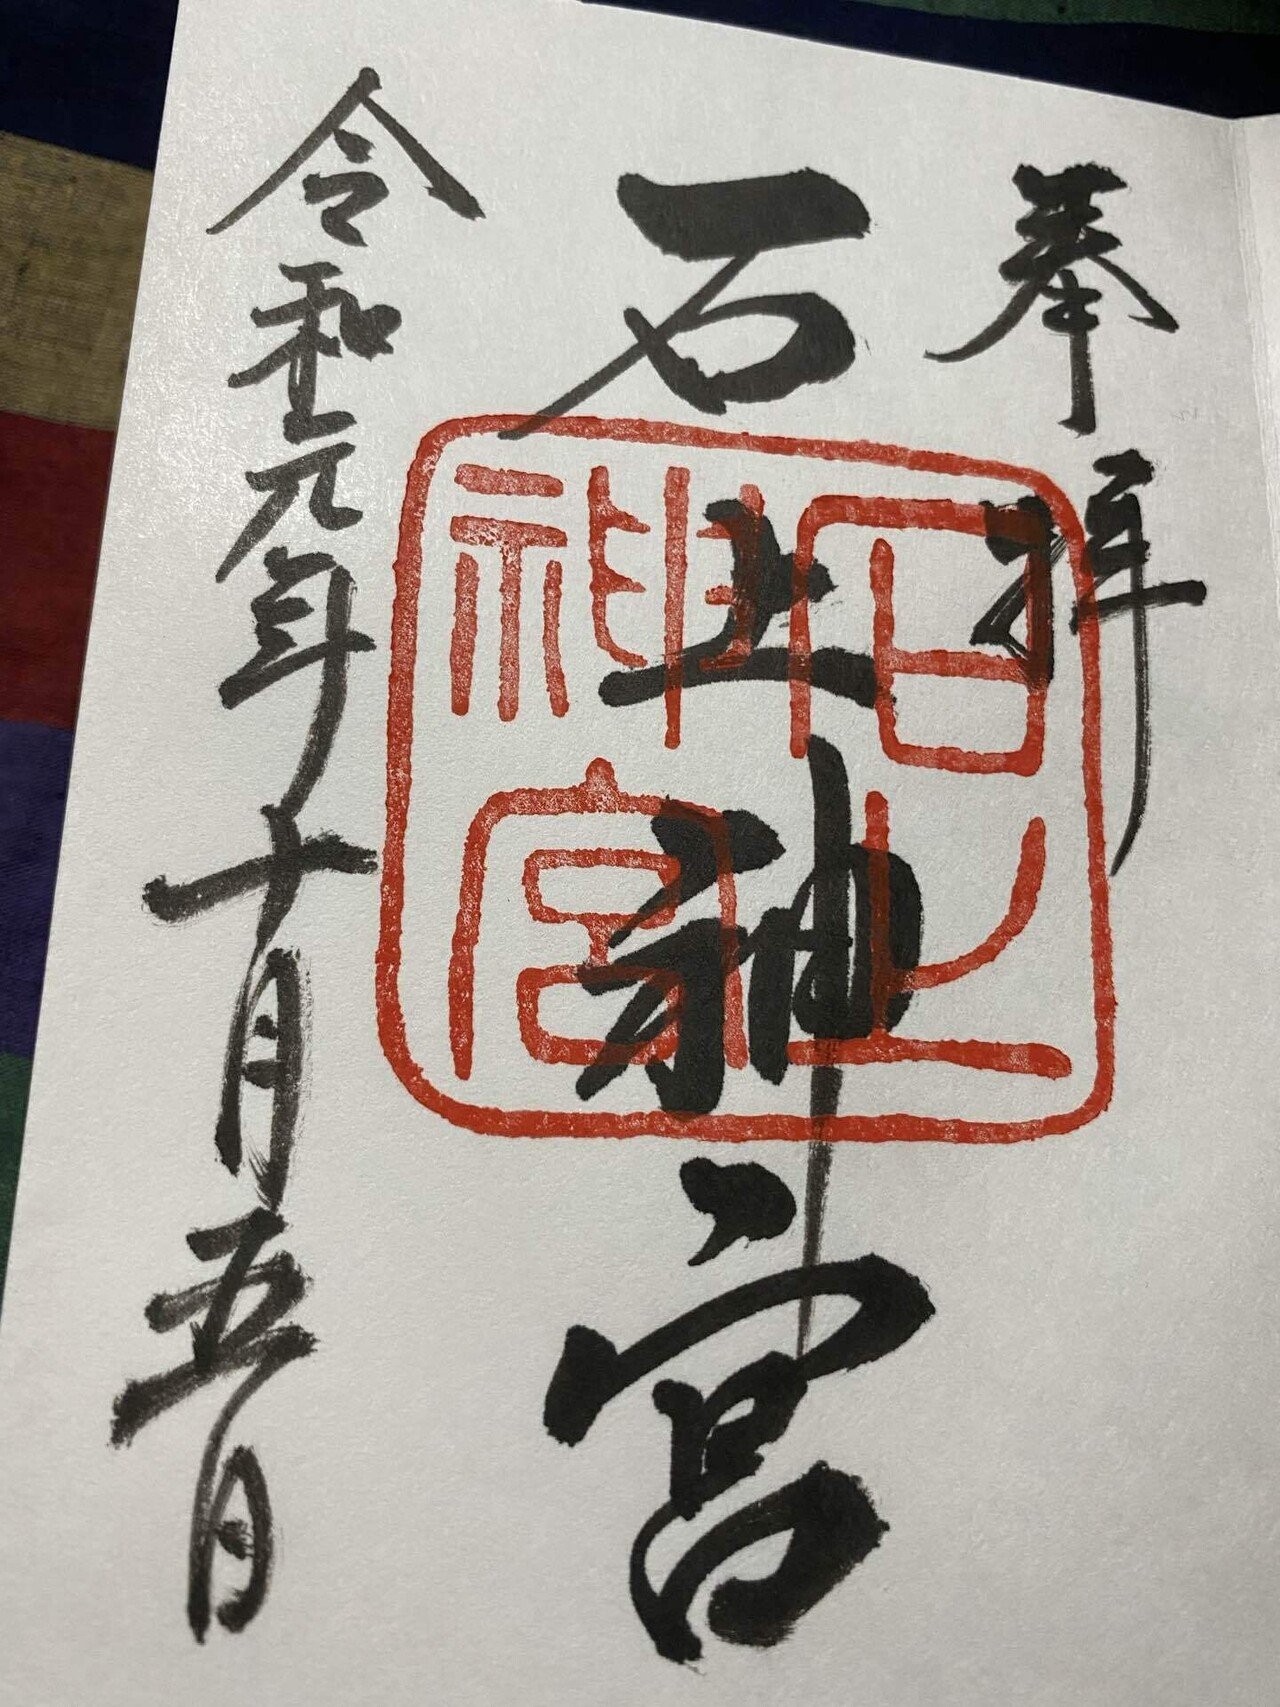 奉拝
石上神宮
石上神宮
令和元年十月五日